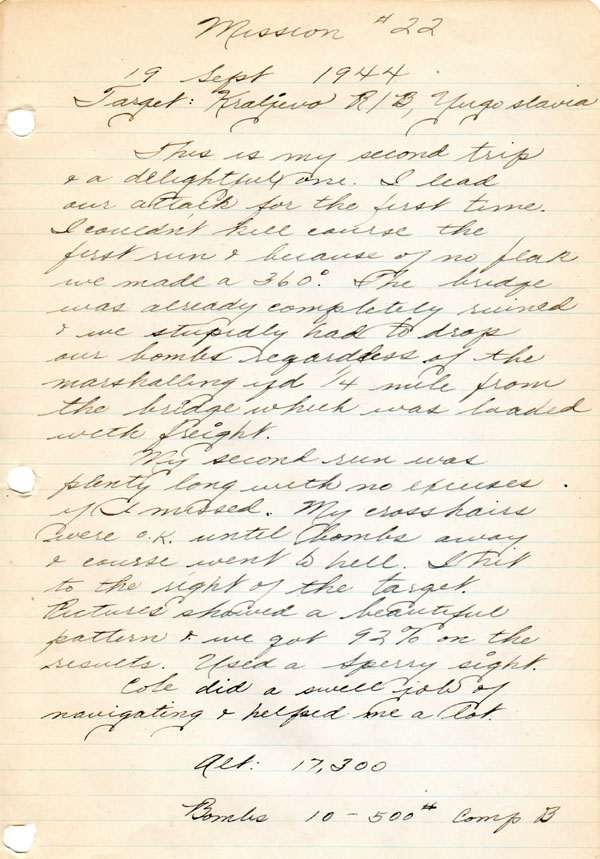 Mission #22
19 Sept 1944
Target: Kraljevo R/B, Yugoslavia
This is my second trip
& a delightful one. I lead
our attack for the first time.
I couldn't kill course the
first run & because of no flak
we made a 360°. The bridge
was already completely ruined
& we stupidly had to drop
our bombs regardless of the
marshalling yd 1/4 mile from
the bridge which was loaded
with freight.
My second run was
plenty long with no excuses
if I missed. My crosshairs
were O.K. until bombs away
& course went to hell. I hit
to the right of the target.
Pictures showed a beautiful
pattern & we got 92% on the
results. Used a Sperry sight.
Cole did a swell job of
navigating & helped me a lot.
Alt: 17,300
Bombs 10 - 500# Comp B